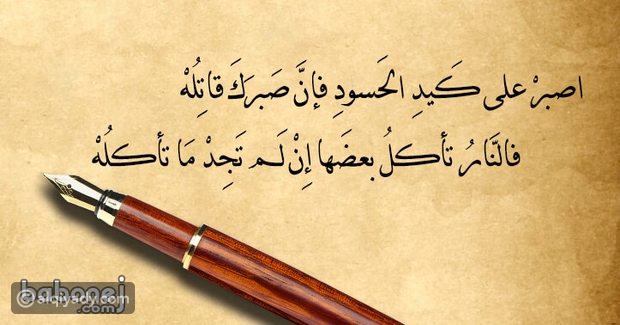 اصبرْ على كَيدِ الحَسودِ فإنَّ صَبرَكَ قاتِلُهْ
فالنَّارُ تأكلُ بعضَها إنْ لَم تَجِدْ مَا تأكلُهْ
babonej
alqiyady.com
.com